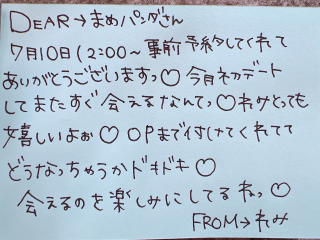 DEAR→まめパンダさん
7月10日12:00～事前予約してくれて
ありがとうございますっ♡ 今月初デート
してまたすぐ会えるなんてっ♡れみとっても
嬉しいよぉ♡ OPまで付けてくれてて
どうなっちゃうかドキドキ♡
会えるのを楽しみにしてるねっ♡
FROM→れみ